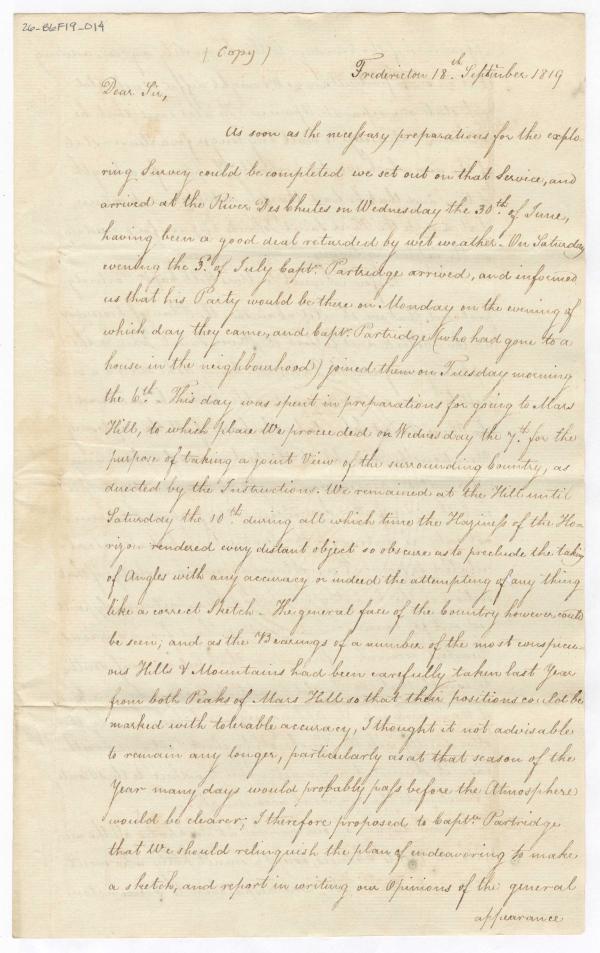 26-B6F19_014
(Copy)
Fredericton 18th. Septmber 1819
Dear Sir,
As soon as the necessary preparations for the explo-
ring Survey could be completed we set out on that Service, and
arrived at the River Des Chutes on Wednesday the 30th. of June,
having been a good deal retarded by wet weather. On Saturday
evening the 3d. of July Captn. Partridge arrived, and informed
us that his Party would be there on Monday on the evening of
which day they came, and Captn. Partridge (who had gone to a
house in the neighbourhood) joined them on Tuesday morning
the 6th. This day was spent in preparations for going to Mars
Hill, to which place We proceeded on Wednesday the 7th. for the
purpose of taking a joint View of the surrounding Country, as
directed by the Instructions. We remained at the Hill until
Saturday the 10th. during all which time the Haziness of the Ho-
rizon rendered every distant object so obscure as to preclude the taking
of Angles with any accuracy or indeed the attempting of any thing
like a correct Sketch. The general face of the Country however could
be seen; and as the Bearings of a number of the most conspicu-
ous Hills & Mountains had been carefully taken last Year
from both Peaks of Mars Hill so that their positions could be
marked with tolerable accuracy, I thought it not advisable
to remain any longer, particularly as at that season of the
Year many days would probably pass before the Atmosphere
would be clearer; I therefore proposed to Captn. Partridge
that We should relinquish the plan of endeavoring to make
a sketch, and report in writing our Opinions of the general
appearance